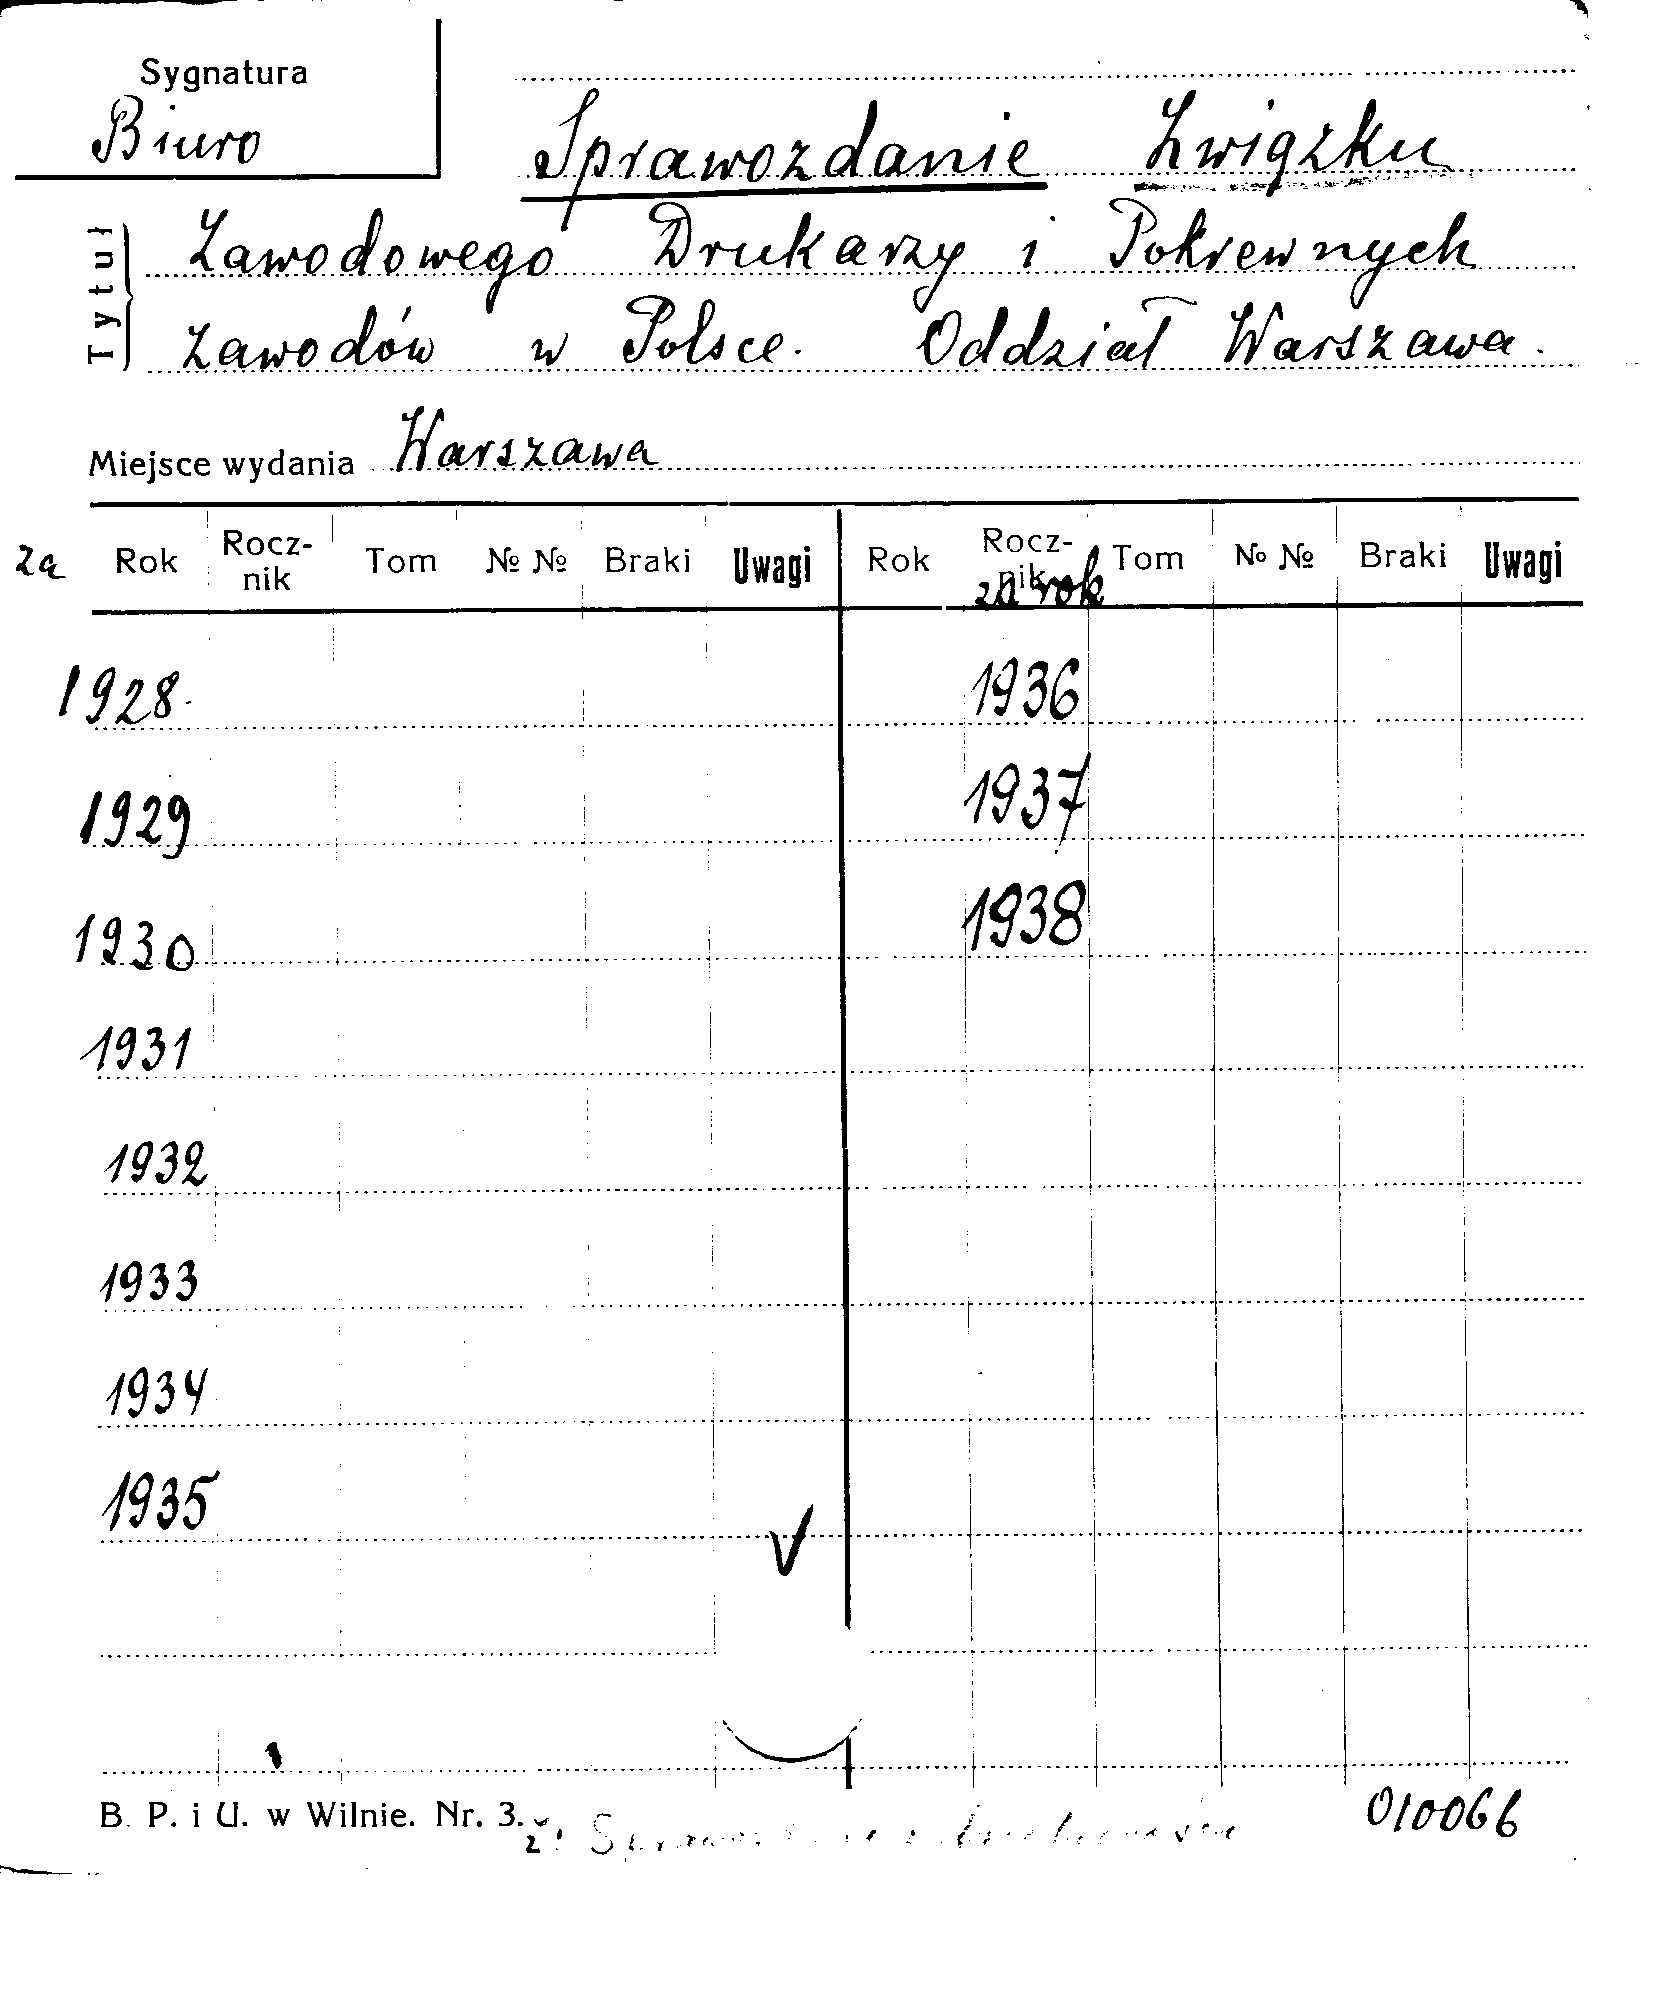 Sygnatura
Biuro
Sprawozdanie Związku
Tytuł
Zawodowego Drukarzy i Pokrewnych
zawodów w Polsce. Oddział Warszawa.
Miejsce wydania Warszawa
za Rok Rocz-nik Tom № № Braki Uwagi Rok Rocz-nik Tom № № Braki Uwagi
za rok
1928. 1936
1929 1937
1930 1938
1931
1932
1933
1934
1935
V
B. P. i U. w Wilnie. Nr. 3.
010066